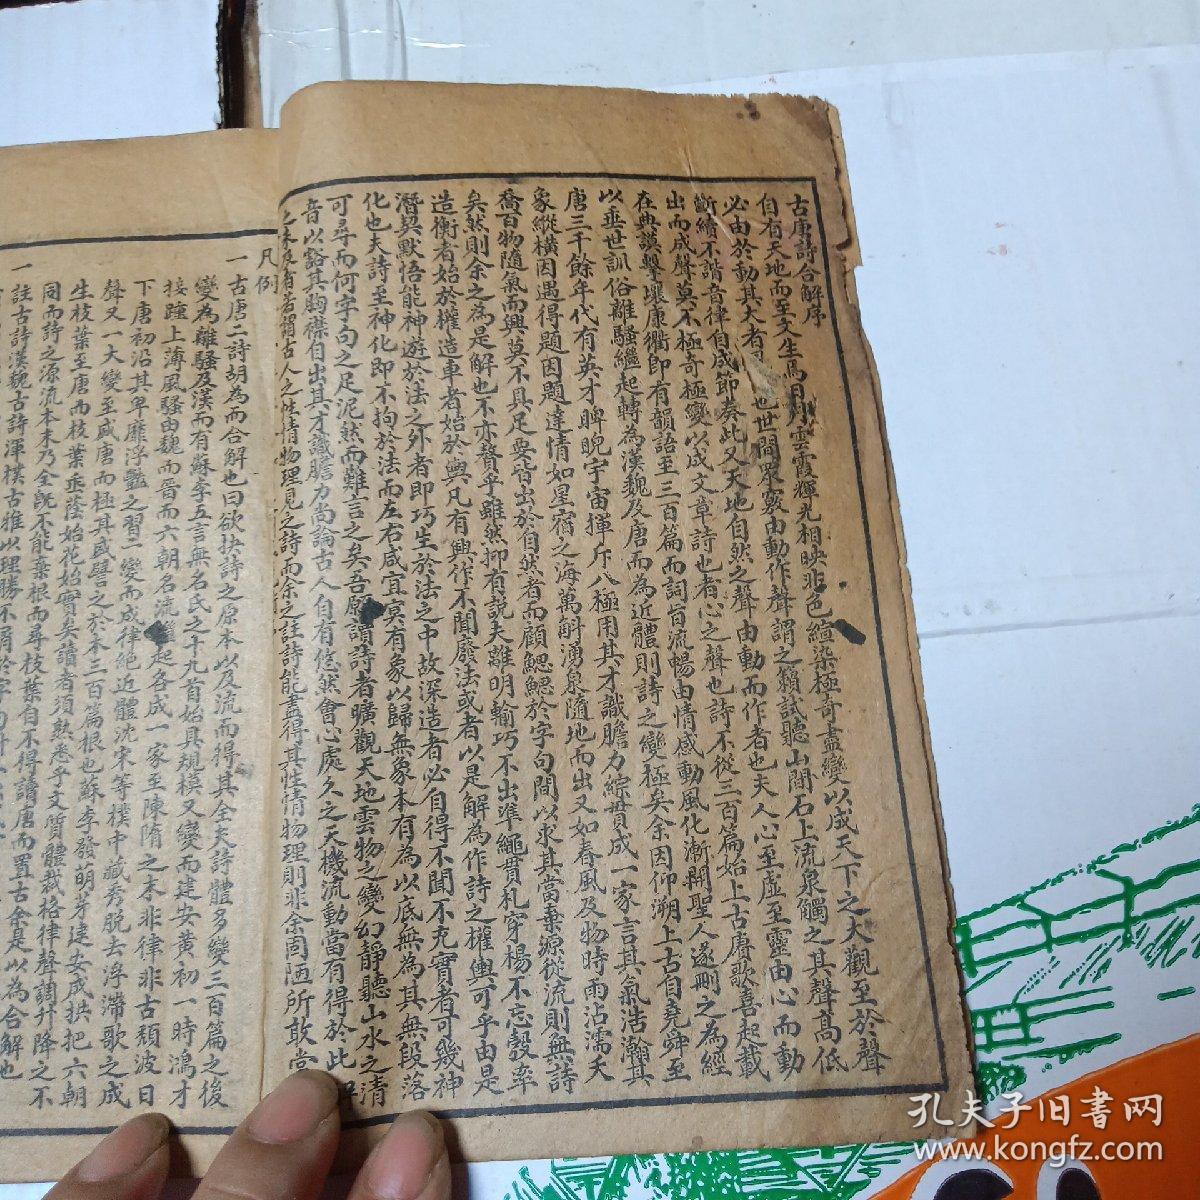 古唐詩合解序
自有天地而至文生焉日月雲霞輝光相映非色繪染極奇盡變以成天下之大觀至於聲
必由於動其大者也世間眾竅由動作聲謂之籟試聽山間石上流泉觸之其聲高低
斷續不諧音律自成節奏此又天地自然之聲由動而作者也夫人心至虛至靈由心而動
出而成聲莫不極奇極變以成文章詩也者心之聲也詩不從三百篇始上古賡歌喜起載
在典謨擊壤康衢即有韻語至三百篇而詞旨流暢由情感動風化漸開聖人遂刪之為經
以垂世訓俗離騷繼起轉為漢魏及唐而為近體則詩之變極矣余因仰溯上古自堯舜至
唐三千餘年代有英才睥睨宇宙揮斥八極用其才識膽力綜貫成一家言其氣浩瀚其
象縱橫因遇得題因題達情如星宿之海萬斛湧泉隨地而出又如春風及物時雨沾濡夭
喬百物隨氣而興莫不具足要皆出於自然者而顧鰓鰓於字句間以求其當棄源從流則無詩
矣然則余之為是解也不亦贅乎雖然抑有說夫離明輸巧不出準繩貫札穿楊不忘彀率
造衡者始於權造車者始於輿凡有興作不聞廢法或者以是解為作詩之權輿可乎由是
潛契默悟能神遊於法之外者即巧生於法之中故深造者必自得不聞不充實者可幾神
化也夫詩至神化即不拘於法而左右咸宜冥有象以歸無象本有為以底無為其無段落
可尋而何字句之足泥然而難言之矣吾願讀詩者曠觀天地雲物之變幻靜聽山水之清
音以豁其胸襟自出其才識膽力尚論古人自有悠然會心處久之天機流動當有得於此解
之未及者若謂古人之性情物理見之詩而余之註詩能盡得其性情物理則非余固陋所敢當
凡例
一古唐二詩胡為而合解也曰欲抉詩之原本以及流而得其全夫詩體多變三百篇之後
變為離騷及漢而有蘇李五言無名氏之十九首始具規模又變而建安黃初一時鴻才
接踵上薄風騷由魏而晉而六朝名流起各成一家至陳隋之末非律非古頹波日
下唐初沿其卑靡浮豔之習一變而成律絕近體沈宋等樸中藏秀脫去浮滯歌之成
聲又一大變至盛唐而極其盛譬之於木三百篇根也蘇李發明芽建安成拱把六朝
生枝葉至唐而枝葉垂蔭始花始實矣讀者須熟悉乎文質體裁格律聲調升降之不
同而詩之源流本末乃全旣不能棄根而尋枝葉自不得讀唐而置古余是以為合解也
一註古詩漢魏古詩渾樸古雅以理勝不屑於字句
孔夫子旧書网
www.kongfz.com